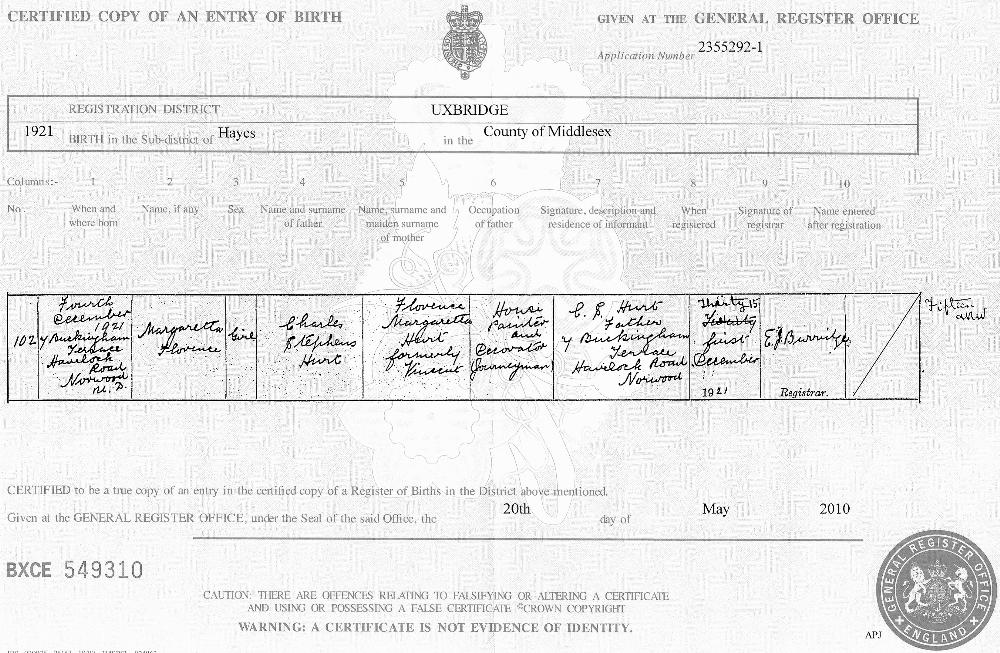 CERTIFIED COPY OF AN ENTRY OF BIRTH
GIVEN AT THE GENERAL REGISTER OFFICE
Application Number 2355292-1
REGISTRATION DISTRICT UXBRIDGE
1921 BIRTH in the Sub-district of Hayes in the County of Middlesex
Columns:- 1 2 3 4 5 6 7 8 9 10
No. When and where born
Name, if any
Sex
Name and surname of father
Name, surname and maiden surname of mother
Occupation of father
Signature, description and residence of informant
When registered
Signature of registrar
Name entered after registration
102
Fourth
December
1921
7 Buckingham
Terrace
Havelock
Road
Norwood
U. D.
Margaretta
Florence
Girl
Charles
Stephens
Hurt
Florence
Margaretta
Hurt
formerly
Vincent
House
Painter
and
Decorator
(Journeyman)
C. S. Hurt
Father
7 Buckingham
Terrace
Havelock Road
Norwood
Thirty 15
first
December
1921
E. J. Burridge
Registrar.
Fifteen
CERTIFIED to be a true copy of an entry in the certified copy of a Register of Births in the District above mentioned.
Given at the GENERAL REGISTER OFFICE, under the Seal of the said Office, the 20th day of May 2010
BXCE 549310
CAUTION: THERE ARE OFFENCES RELATING TO FALSIFYING OR ALTERING A CERTIFICATE
AND USING OR POSSESSING A FALSE CERTIFICATE ©CROWN COPYRIGHT
WARNING: A CERTIFICATE IS NOT EVIDENCE OF IDENTITY.
GENERAL REGISTER OFFICE
ENGLAND
APJ